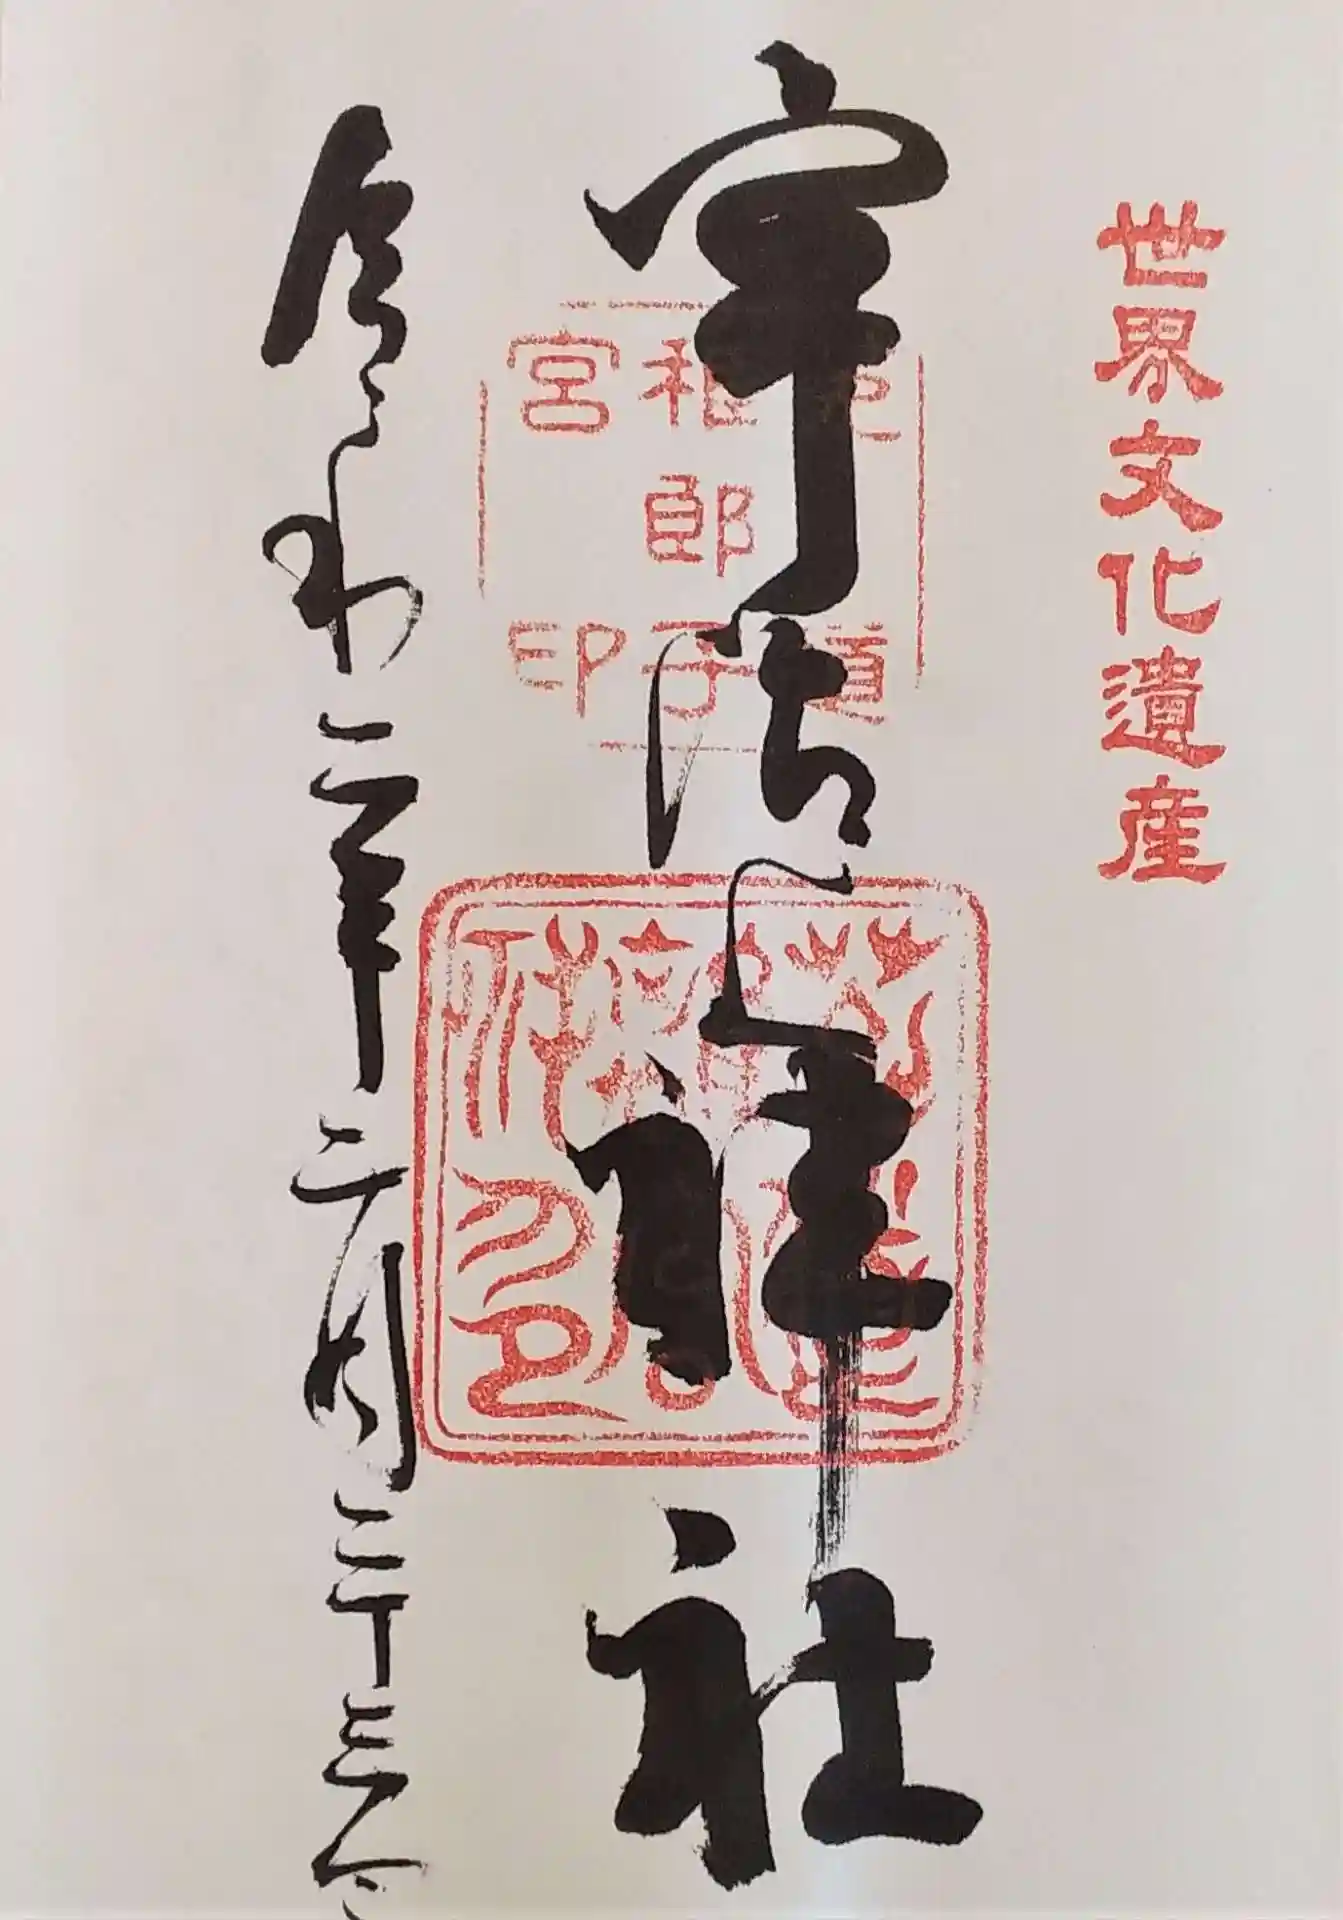 世界文化遺産
宇治上神社
菟道
稚郎子
宮印
令和二年二月二十三日